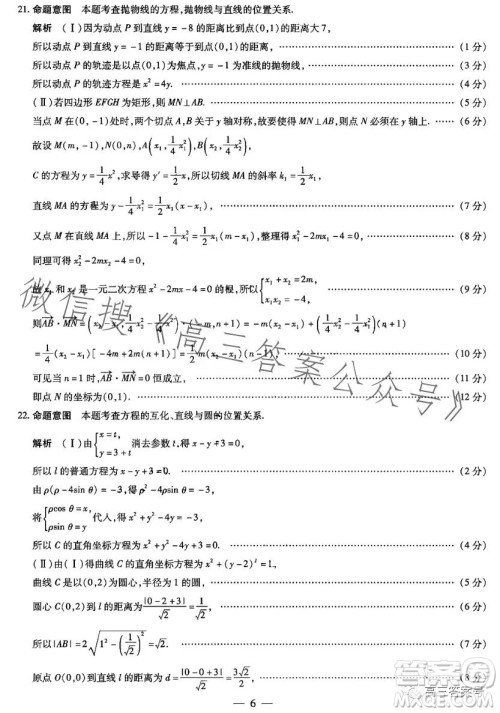 21. 命题意图 本题考查抛物线的方程,抛物线与直线的位置关系.
解析 (Ⅰ)因为动点 P 到直线 y=-8 的距离比到点(0,1)的距离大 7,
所以动点 P 到直线 y=-1 的距离等于到点(0,1)的距离, (1 分)
所以动点 P 的轨迹是以点(0,1)为焦点,y=-1 为准线的抛物线, (3 分)
所以动点 P 的轨迹方程是 x²=4y. (4 分)
(Ⅱ)若四边形 EFGH 为矩形,则 MN⊥AB. (5 分)
当点 M 在(0,-1)处时,两个切点 A,B 关于 y 轴对称,故要使得 MN⊥AB,则点 N 必须在 y 轴上. (6 分)
故设 M(m,-1),N(0,n),A(x₁,1/4 x₁²),B(x₂,1/4 x₂²),
C 的方程为 y=1/4 x²,求导得 y'=1/2 x,所以切线 MA 的斜率 k₁=1/2 x₁,
直线 MA 的方程为 y-1/4 x₁²=1/2 x₁(x-x₁), (7 分)
又点 M 在直线 MA 上,所以-1-1/4 x₁²=1/2 x₁(m-x₁),整理得 x₁²-2mx₁-4=0, (8 分)
同理可得 x₂²-2mx₂-4=0,
故 x₁ 和 x₂ 是一元二次方程 x²-2mx-4=0 的根,所以{x₁+x₂=2m, x₁x₂=-4, (9 分)
则AB·MN=(x₂-x₁,1/4 x₂²-1/4 x₁²)·(-m,n+1)=-m(x₂-x₁)+1/4(x₂²-x₁²)(n+1)
=1/4(x₂-x₁)[-4m+2m(n+1)]=1/2 m(x₂-x₁)(n-1), (10 分)
可见当 n=1 时,AB·MN=0 恒成立, (11 分)
即点 N 的坐标为(0,1). (12 分)
22. 命题意图 本题考查方程的互化、直线与圆的位置关系.
解析 (Ⅰ)由{x=t, y=3+t 消去参数 t,得 x-y+3=0.
所以 l 的普通方程为 x-y+3=0. (2 分)
由 ρ(ρ-4sin θ)=-3,得 ρ²-4ρsin θ=-3,
将{ρcos θ=x, ρsin θ=y 代入,得 x²+y²-4y=-3,
所以 C 的直角坐标方程为 x²+y²-4y+3=0. (4 分)
(Ⅱ)由(Ⅰ)得曲线 C 的直角坐标方程为 x²+(y-2)²=1,
曲线 C 是以(0,2)为圆心,半径为 1 的圆, (5 分)
圆心 C(0,2)到 l 的距离为|0-2+3|/√2=1/√2, (6 分)
所以|AB|=2√(1²-(1/√2)²)=√2, (7 分)
原点 O(0,0)到直线 l 的距离为 d=|0-0+3|/√2=3√2/2, (8 分)
— 6 —
微信搜《高三答案公众号》
高三答案号